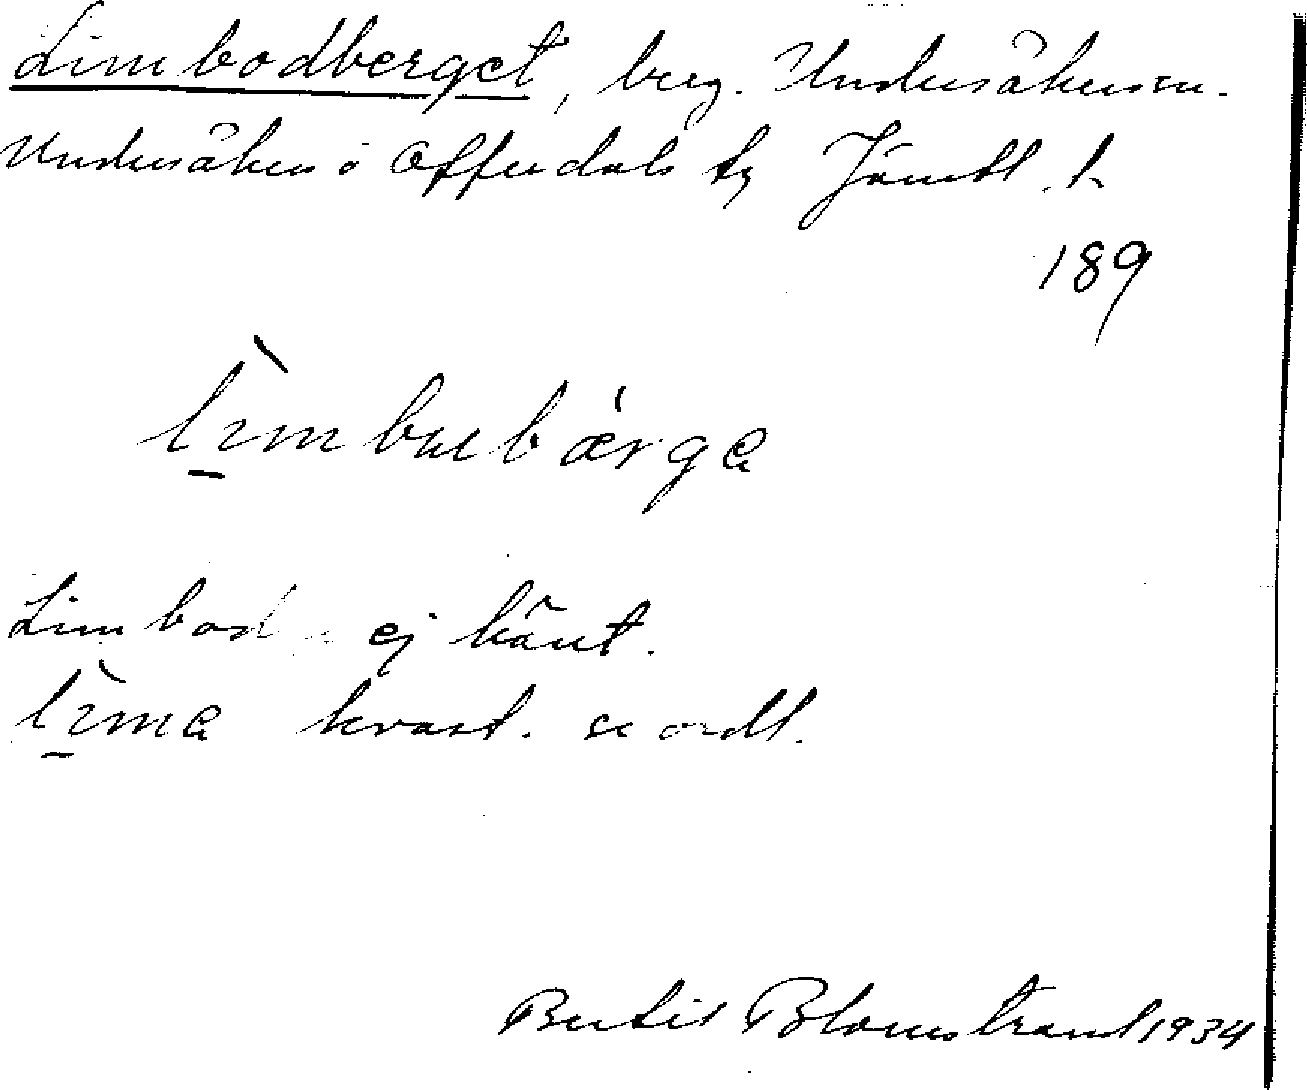 Limbodberget, berg. Undersåkers sn.
Undersåkers o Offerdals tg Jämtl. l.
189
lìmbubárga
Limbod- ej känt.
lìma kvast. se ordl.
Bertil Blomstrand 1934